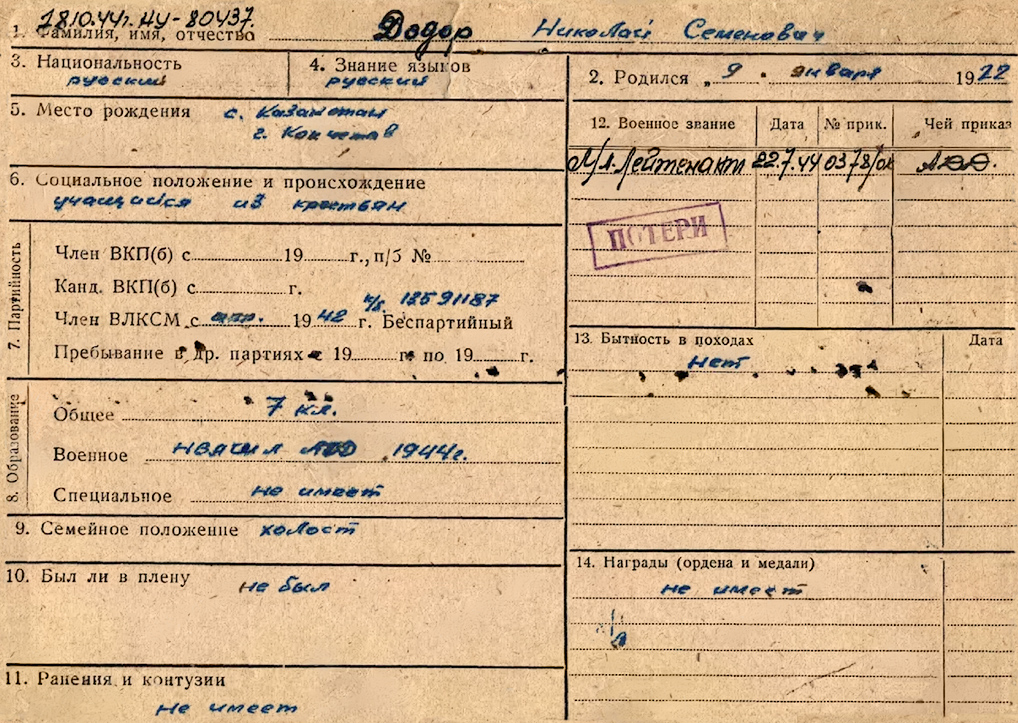 18.10.44г. НУ-80437.
1. Фамилия, имя, отчество Додор Николай Семенович
3. Национальность русский
4. Знание языков русский
5. Место рождения с. Казахстан
г. Кокчетав
6. Социальное положение и происхождение
учащийся из крестьян
7. Партийность
Член ВКП(б) с 19 г., п/б №
Канд. ВКП(б) с г.
к/б. 13591187
Член ВЛКСМ с апр. 1942 г. Беспартийный
Пребывание в др. партиях с 19 г. по 19 г.
8. Образование
Общее 7 кл.
Военное 1944г.
Специальное не имеет
9. Семейное положение холост
10. Был ли в плену не был
11. Ранения и контузии
не имеет
2. Родился „9 " января 1922
12. Военное звание Дата № прик. Чей приказ
М/л. Лейтенант 22.7.44 0378/
ПОТЕРИ
13. Бытность в походах Дата
нет
14. Награды (ордена и медали)
не имеет